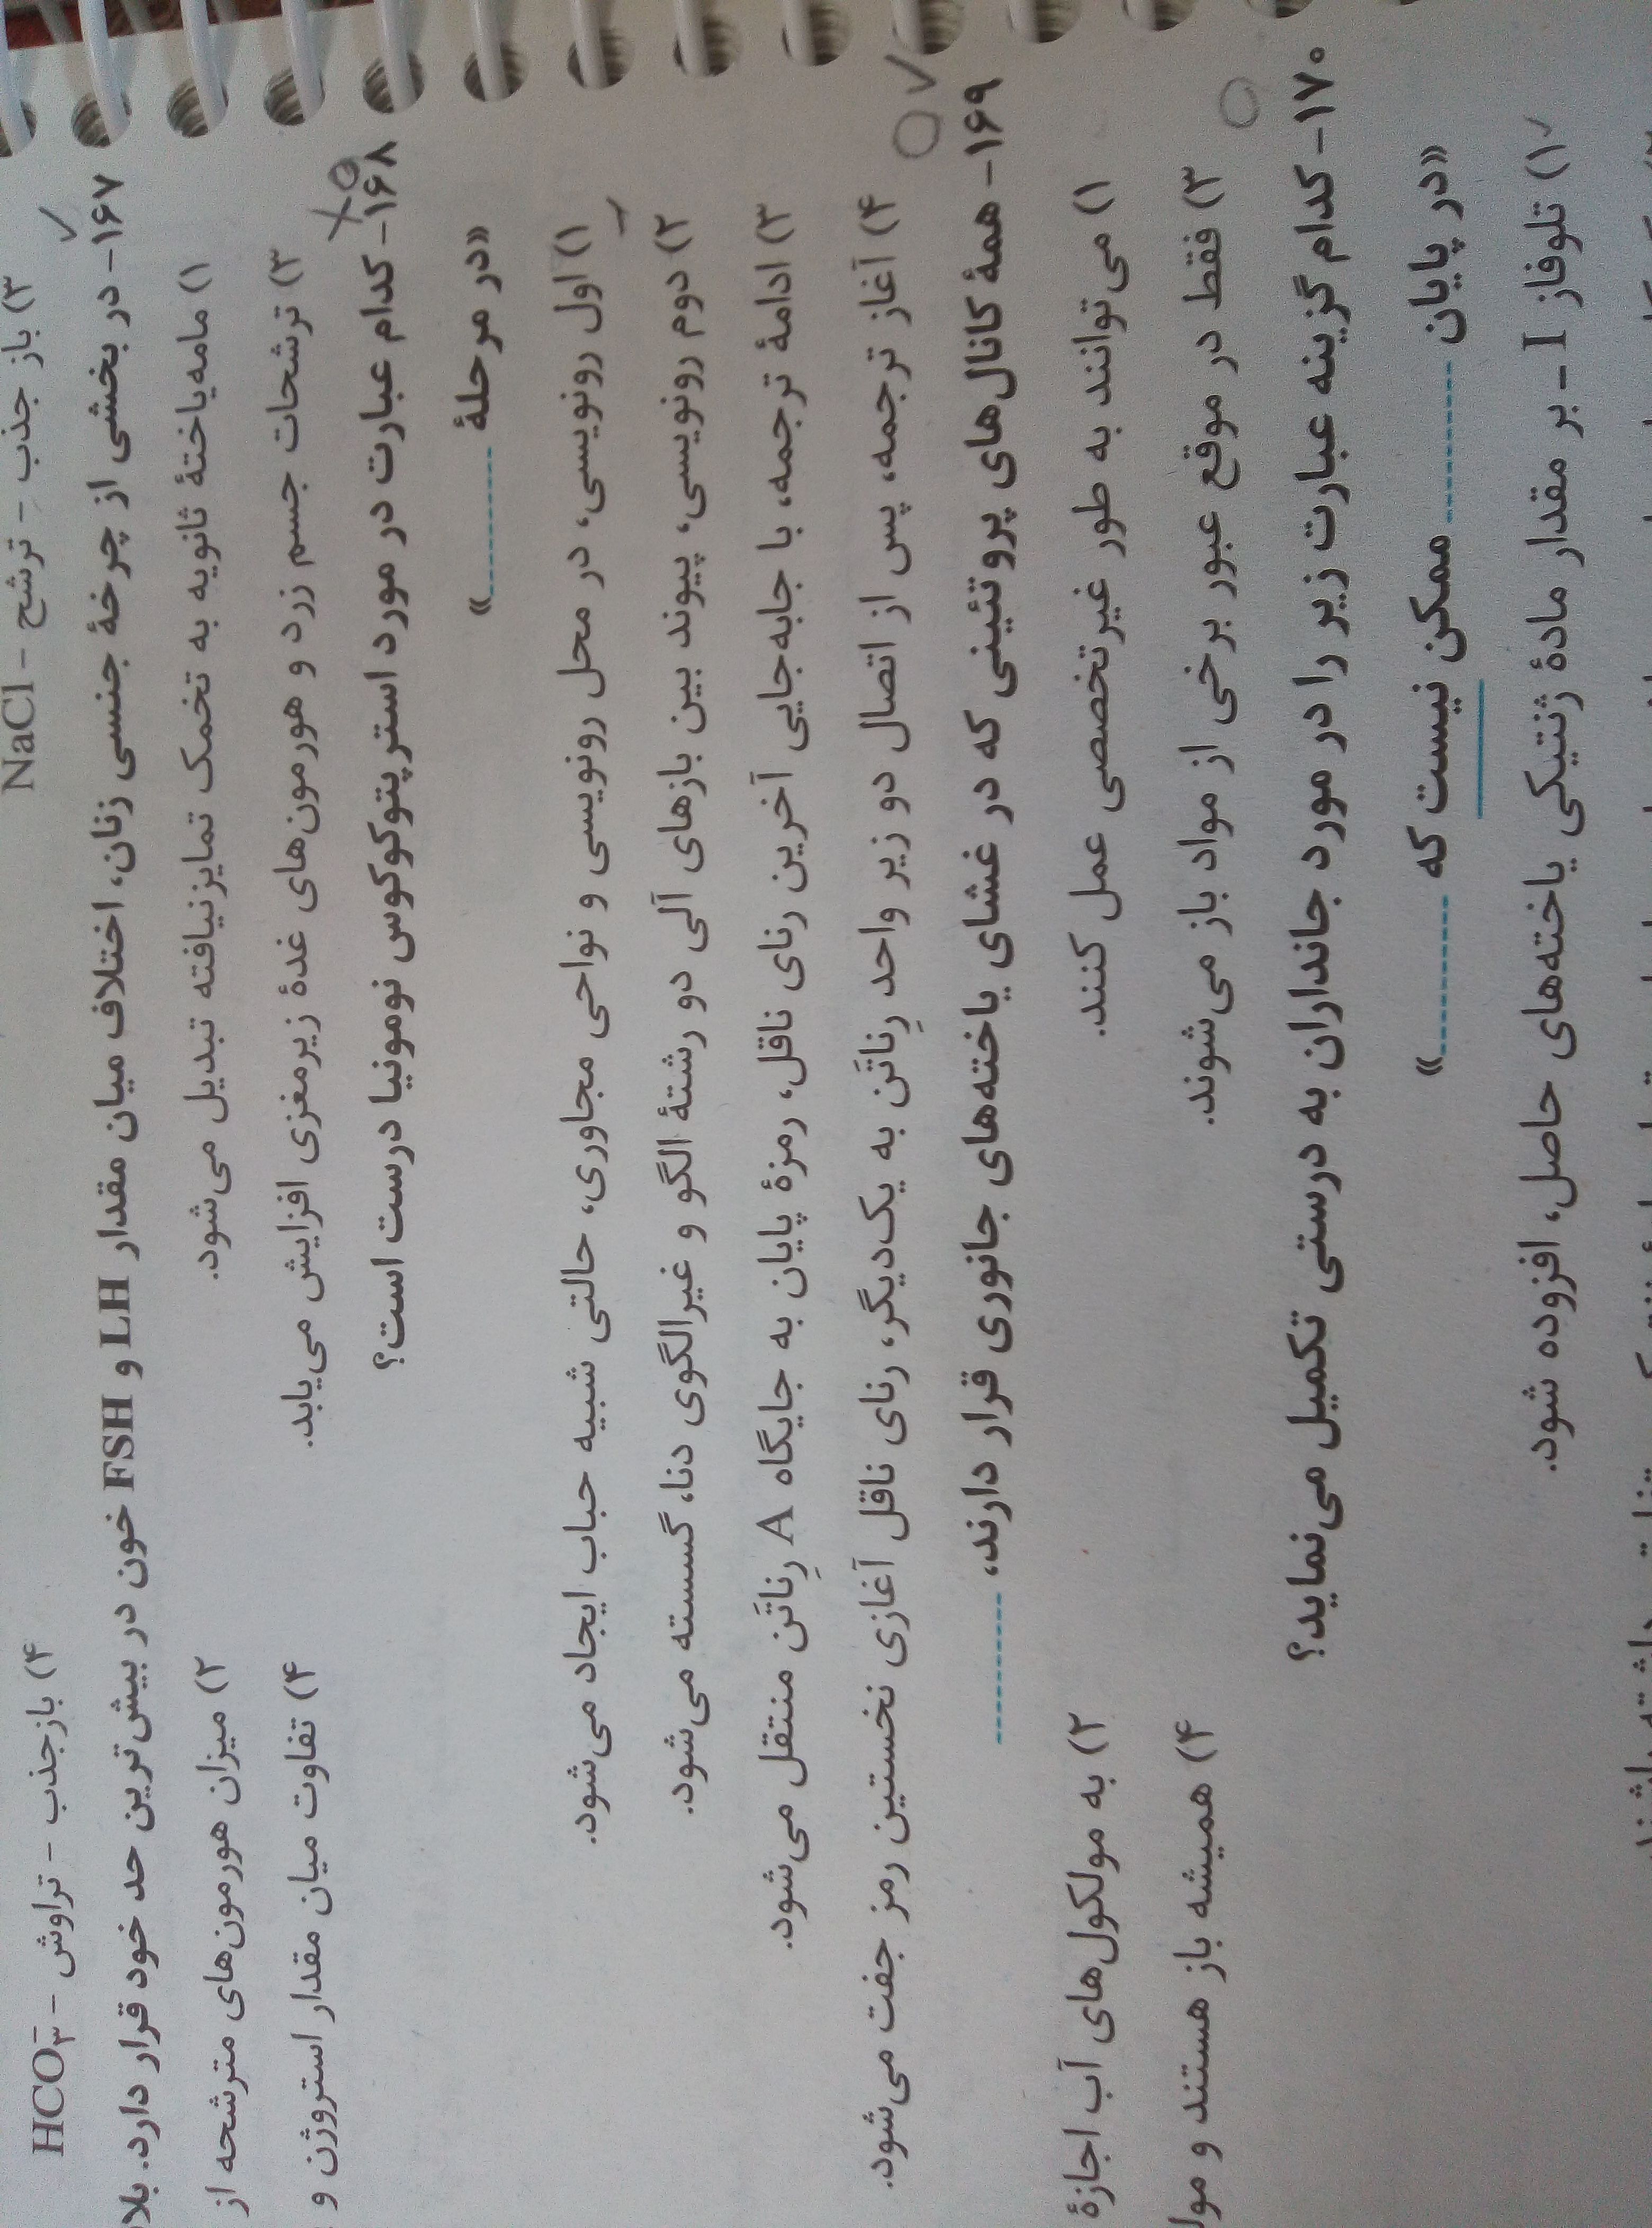 ۳) باز جذب - ترشح - NaCl ۴) بازجذب - تراوش - HCO₃⁻
۱۶۷- در بخشی از چرخهٔ جنسی زنان، اختلاف میان مقدار LH و FSH خون در بیش‌ترین حد خود قرار دارد. بلا
۱) مامه‌یاختهٔ ثانویه به تخمک تمایزنیافته تبدیل می‌شود. ۲) میزان هورمون‌های مترشحه از
۳) ترشحات جسم زرد و هورمون‌های غدهٔ زیرمغزی افزایش می‌یابد. ۴) تفاوت میان مقدار استروژن و
۱۶۸- کدام عبارت در مورد استرپتوکوکوس نومونیا درست است؟
«در مرحلهٔ ............»
۱) اول رونویسی، در محل رونویسی و نواحی مجاوری، حالتی شبیه حباب ایجاد می‌شود.
۲) دوم رونویسی، پیوند بین بازهای آلی دو رشتهٔ الگو و غیرالگوی دنا، گسسته می‌شود.
۳) ادامهٔ ترجمه، با جابه‌جایی آخرین رنای ناقل، رمزهٔ پایان به جایگاه A رِناتَن منتقل می‌شود.
۴) آغاز ترجمه، پس از اتصال دو زیر واحد رِناتَن به یک‌دیگر، رنای ناقل آغازی نخستین رمز جفت می‌شود.
۱۶۹- همهٔ کانال‌های پروتئینی که در غشای یاخته‌های جانوری قرار دارند، ............
۱) می‌توانند به طور غیرتخصصی عمل کنند. ۲) به مولکول‌های آب اجازهٔ
۳) فقط در موقع عبور برخی از مواد باز می‌شوند. ۴) همیشه باز هستند و مول
۱۷۰- کدام گزینه عبارت زیر را در مورد جانداران به درستی تکمیل می‌نماید؟
«در پایان ............ ممکن نیست که ............»
۱) تلوفاز I - بر مقدار مادهٔ ژنتیکی یاخته‌های حاصل، افزوده شود.